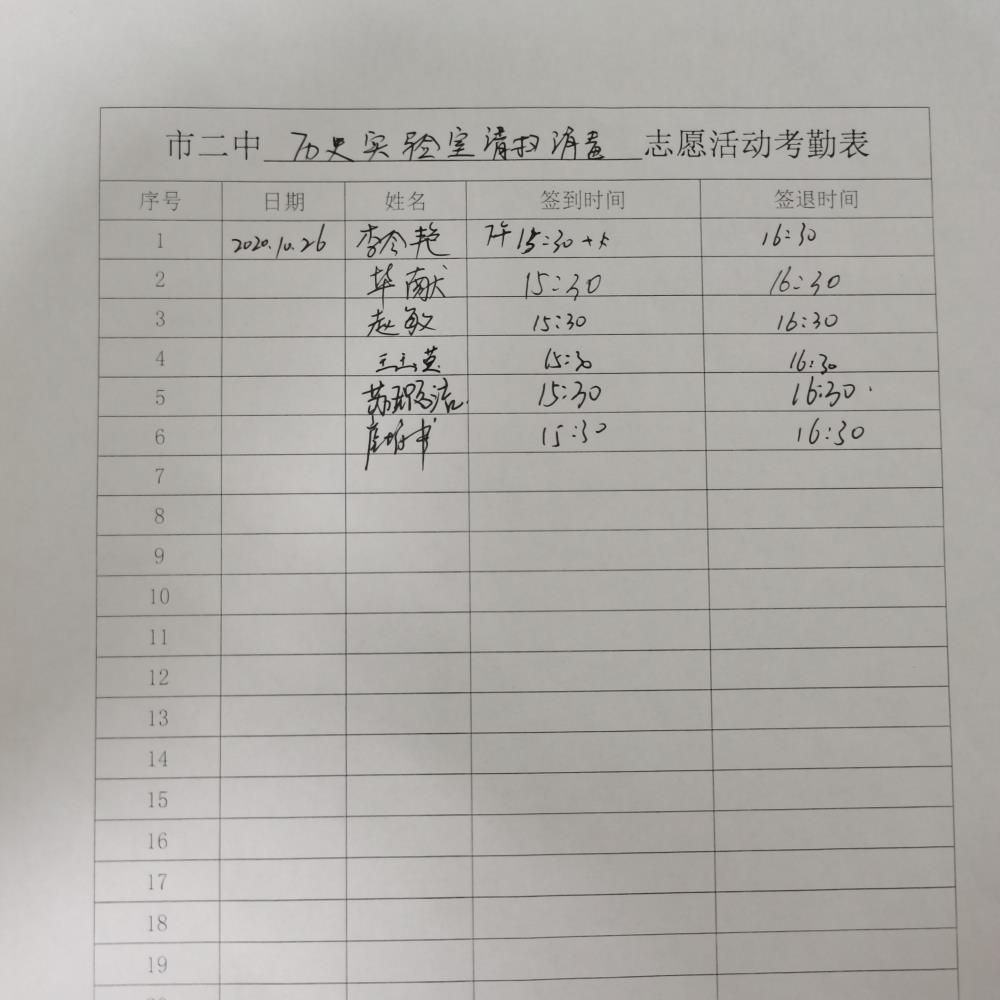 市二中 历史实验室清扫消毒 志愿活动考勤表
序号 日期 姓名 签到时间 签退时间
1 2020.10.26 李令艳 下午 15:30 16:30
2 华献 15:30 16:30
3 赵敏 15:30 16:30
4 王玉英 15:30 16:30
5 15:30 16:30
6 15:30 16:30
7
8
9
10
11
12
13
14
15
16
17
18
19